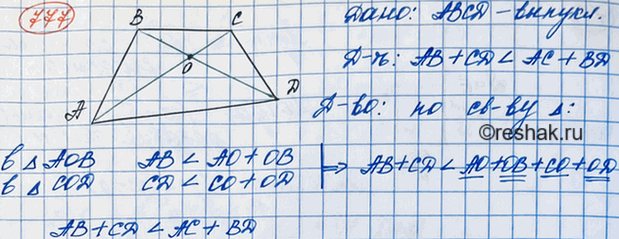 777
B C
O
A D
Дано: ABCD - выпукл.
Д-ть: AB + CD < AC + BD
Д-во: по св-ву Δ:
©reshak.ru
в Δ AOB AB < AO + OB
в Δ COD CD < CO + OD
⇒ AB + CD < AO + OB + CO + OD
AB + CD < AC + BD